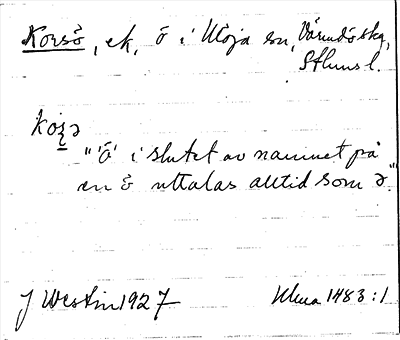 Korsö, ek, ö i Utöja sn, Värmdö skg,
Sthms l.
koʒə
"'Ö' i slutet av namnet på
en ö uttalas alltid som ə."
J Westin 1927 Ulma 1483:1